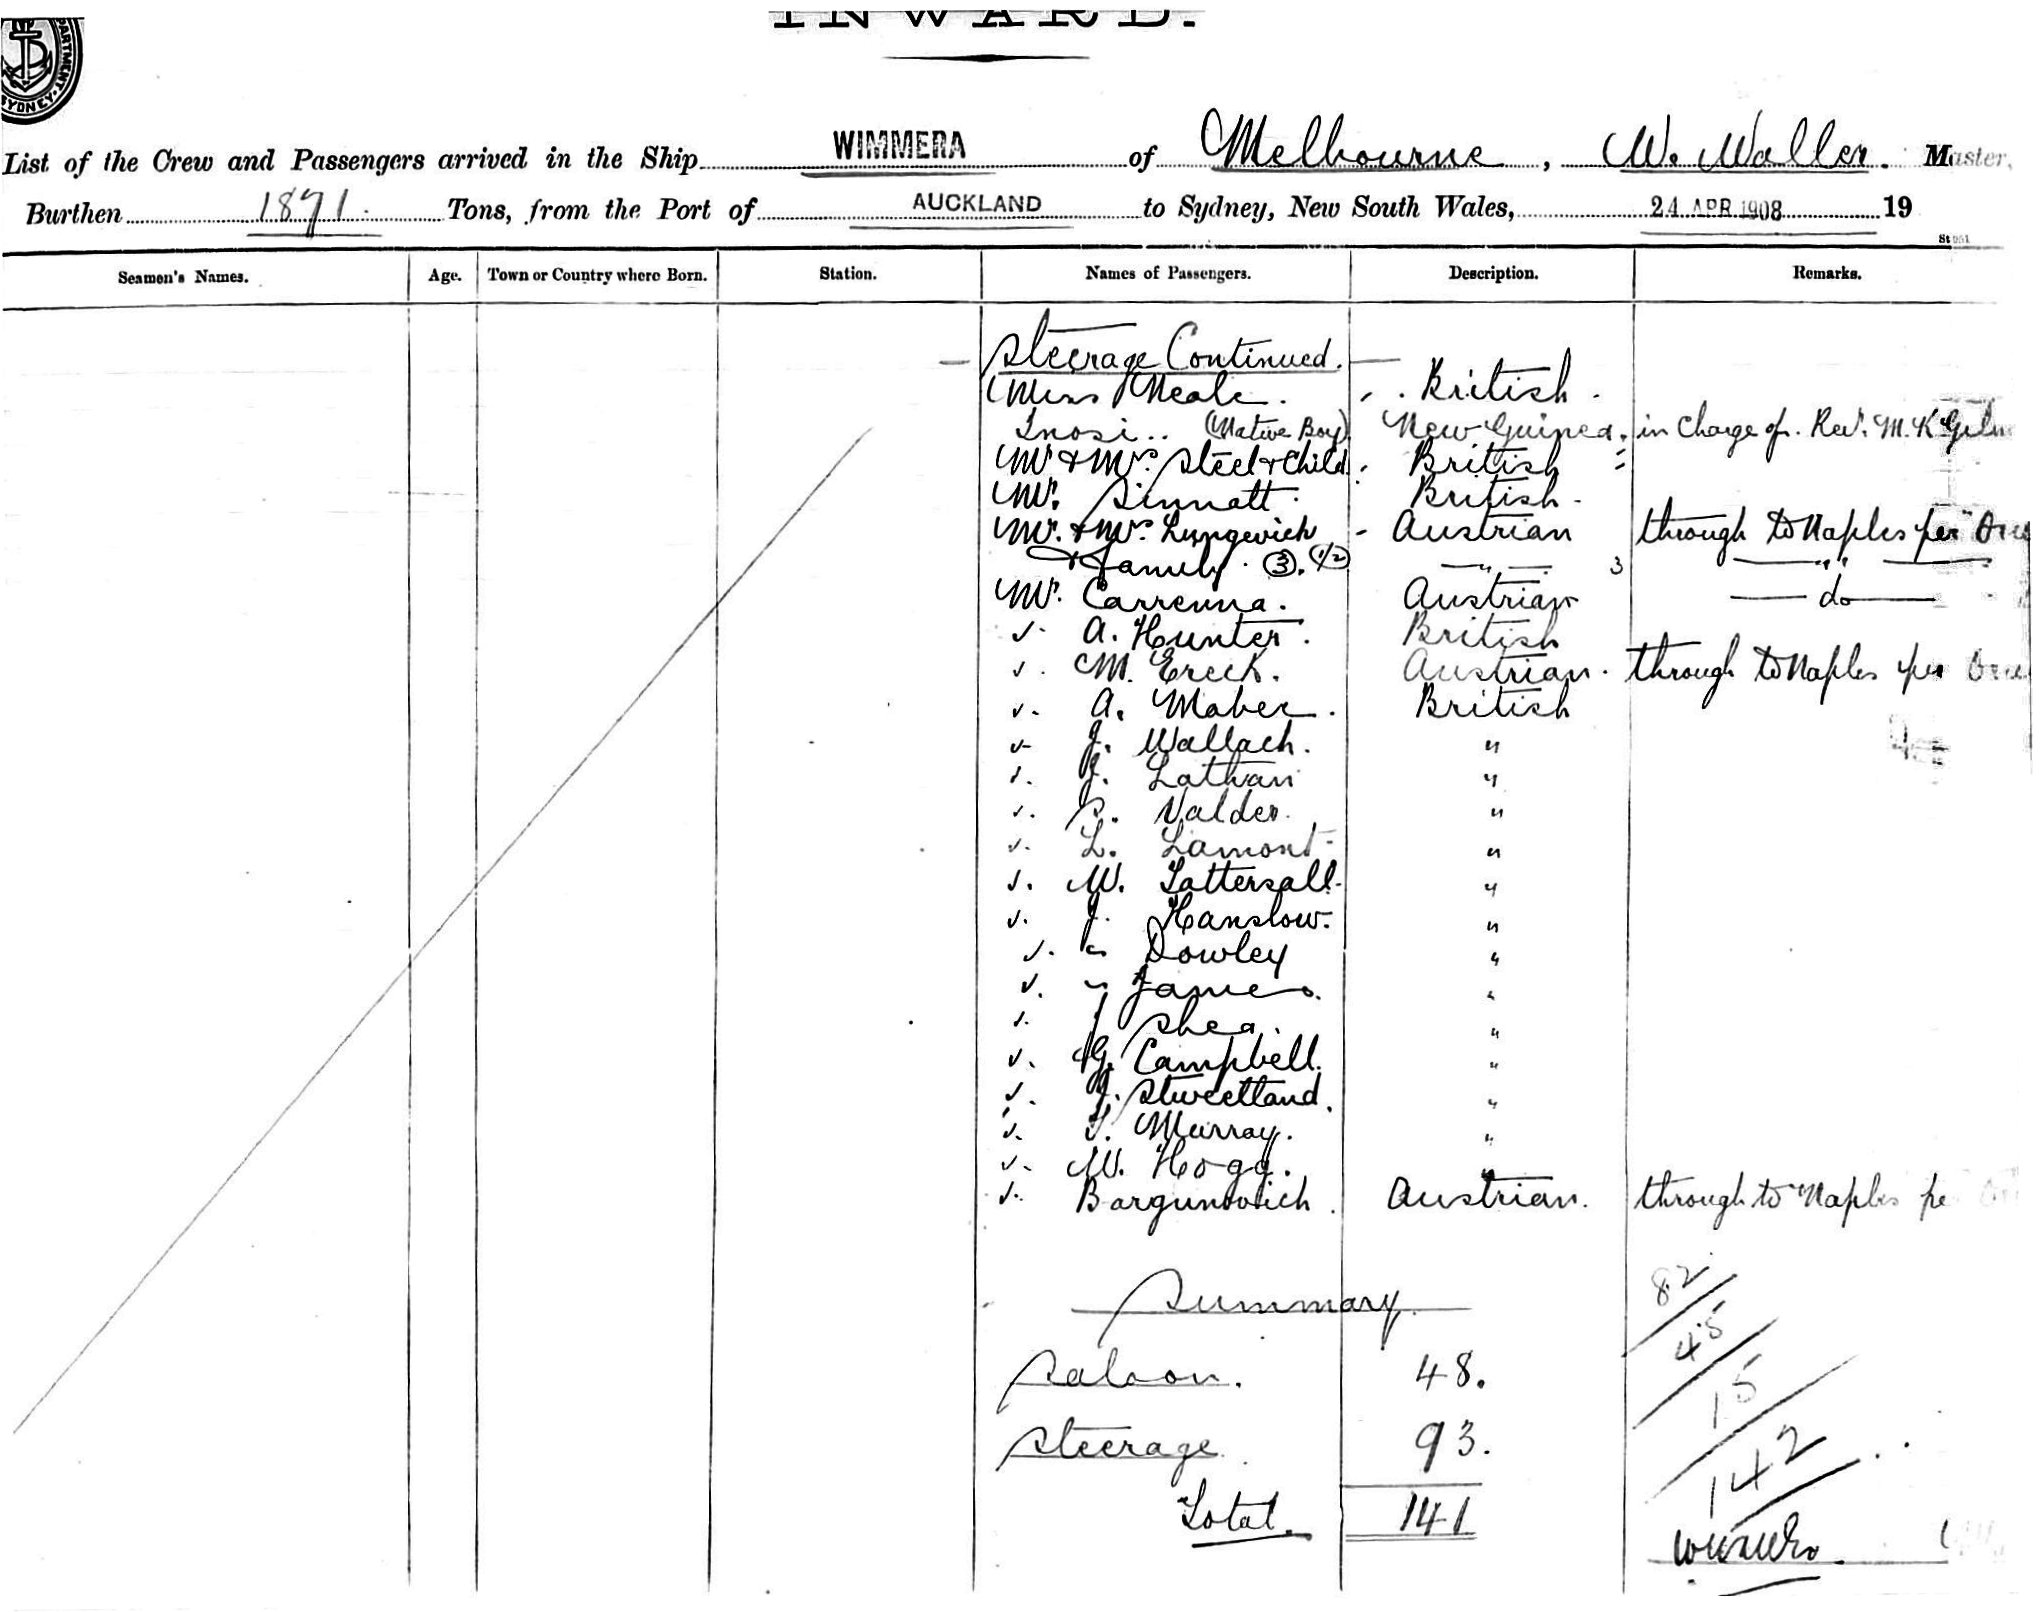 INWARD.
ARTMENT
SYDNEY
List of the Crew and Passengers arrived in the Ship WIMMERA of Melbourne, W. Waller. Master,
Burthen 1871. Tons, from the Port of AUCKLAND to Sydney, New South Wales, 24 APR 1908 19
Seamen's Names. Age. Town or Country where Born. Station. Names of Passengers. Description. Remarks.
Steerage Continued.
Miss Neale. British
Inosi.. (Native Boy) New Guinea. in Charge of. Revd. M. K
Mr & Mrs. Steel & Child British
Mr. Sinnatt British
Mr. & Mrs. Lungevich Austrian through to Naples per
& family. 3. (1/2) — " — 3 — " " —
Mr. Carrenna. Austrian — do —
A. Hunter. British
M. Ereck. Austrian. through to Naples per
A. Maber. British
J. Wallach. "
J. Lathan "
S. Valder. "
L. Lamont "
W. Tattersall "
J. Hanslow. "
" Dowley "
" James. "
J Shea. "
G. Campbell. "
J. Stweetland. "
T. Murray. "
W. Hogg. "
Bargunovich. Austrian. through to Naples pe
Summary.
82
45
15
142
Saloon. 48.
Steerage 93.
Total. 141